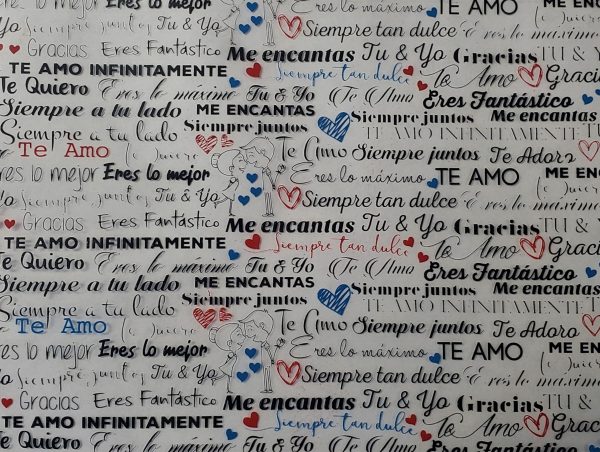 Eres lo mejor Tu & Yo Eres lo máximo TE AMO Te Quiero
Gracias Eres Fantástico Siempre tan dulce
Me encantas Tu & Yo Gracias TU &
TE AMO INFINITAMENTE Siempre tan dulce Te Amo Gracias
Te Quiero Tu & Yo Te Amo Eres Fantástico
Siempre a tu lado ME ENCANTAS Siempre juntos Me encantas
Siempre a tu lado Siempre juntos TE AMO INFINITAMENTE
Te Amo Te Quiero Te Amo Siempre juntos Te Adoro
es lo mejor Eres lo mejor Eres lo máximo TE AMO ME EN
Siempre juntos Tu & Yo Siempre tan dulce Eres lo máximo
Gracias Eres Fantástico Me encantas Tu & Yo Gracias TU &
TE AMO INFINITAMENTE Siempre tan dulce Te Amo Gracias
Te Quiero Eres lo máximo Tu & Yo Te Amo Eres Fantástico
Siempre a tu lado ME ENCANTAS Siempre juntos Me encantas
Siempre a tu lado Siempre juntos TE AMO INFINITAMENTE
Te Amo Te Amo Siempre juntos Te Adoro
es lo mejor Eres lo mejor Eres lo máximo TE AMO ME EN
Siempre juntos Tu & Yo Siempre tan dulce Eres lo máximo
Gracias Eres Fantástico Me encantas Tu & Yo Gracias TU &
TE AMO INFINITAMENTE Siempre tan dulce Te Amo Gracias
Te Quiero Eres lo máximo Tu & Yo Te Amo Eres Fantástico